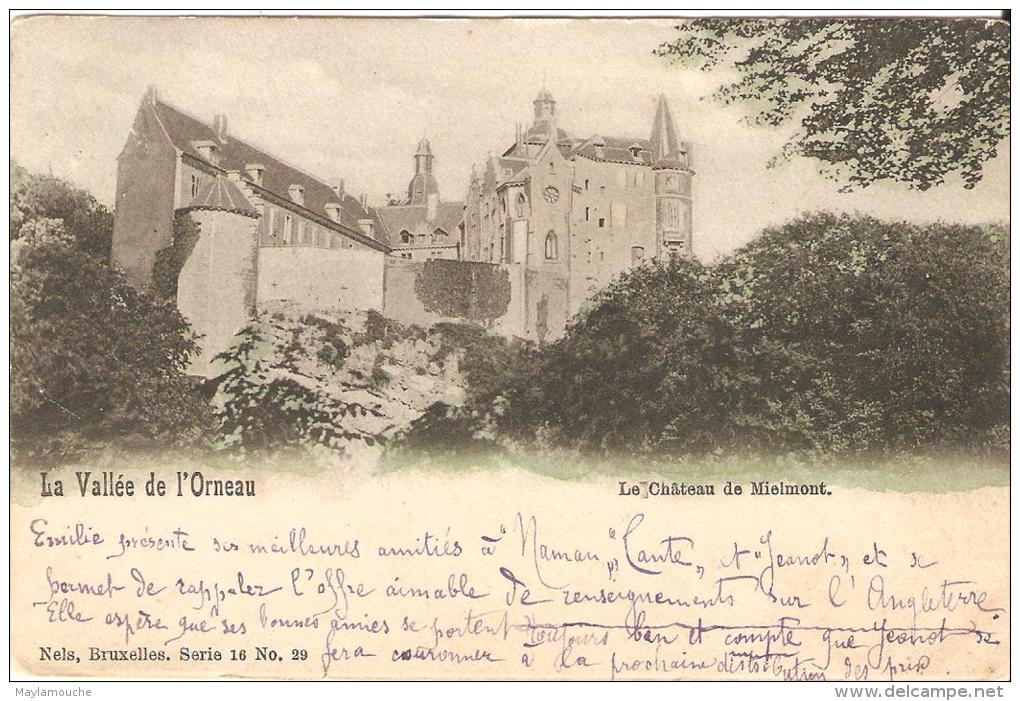 La Vallée de l'Orneau
Le Château de Mielmont.
Emilie présente ses meilleures amitiés à "Maman", "Tante", et "Jeanot" et se
permet de rappeler l'offre aimable de renseignements sur l'Angleterre
Elle espère que ses bonnes amies se portent toujours bien et compte que Jeanot se
fera couronner à la prochaine distribution des prix
Nels, Bruxelles. Serie 16 No. 29
Maylamouche
www.delcampe.net